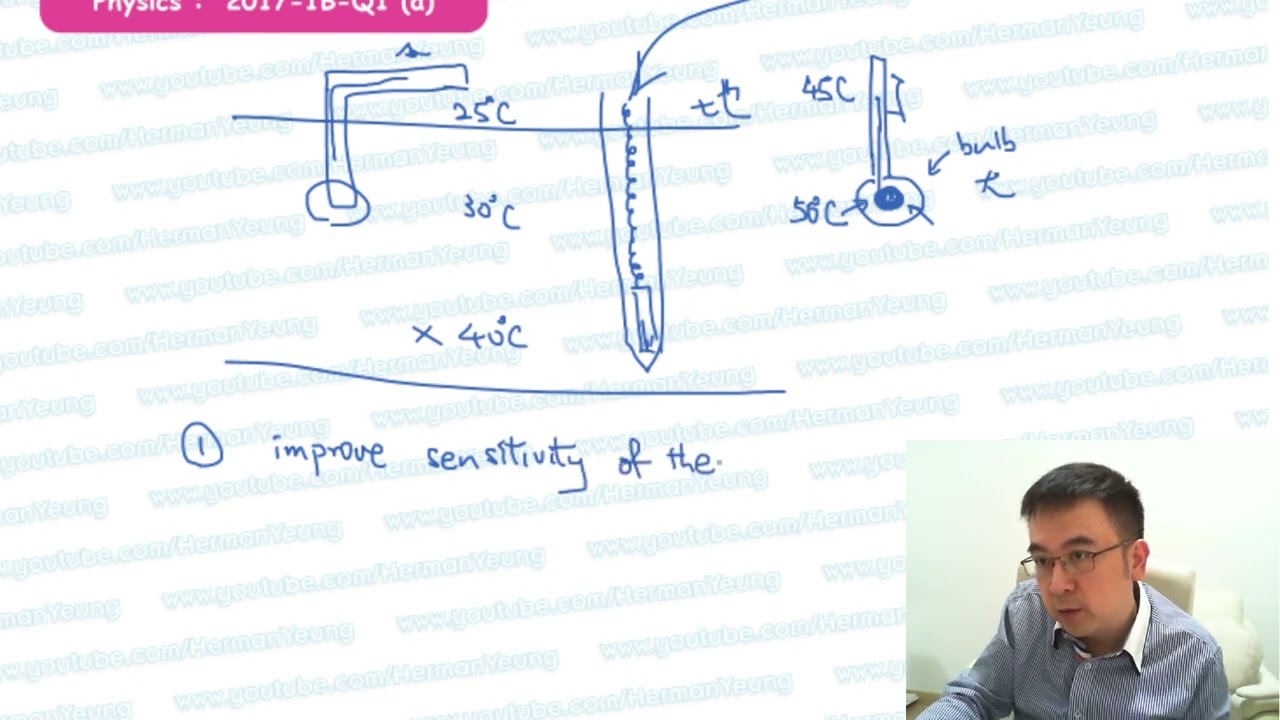 Physics : 2017-1B-Q1 (a)
25°C
45C
bulb
50°C
30°C
× 40°C
① improve sensitivity of the
www.youtube.com/HermanYeung